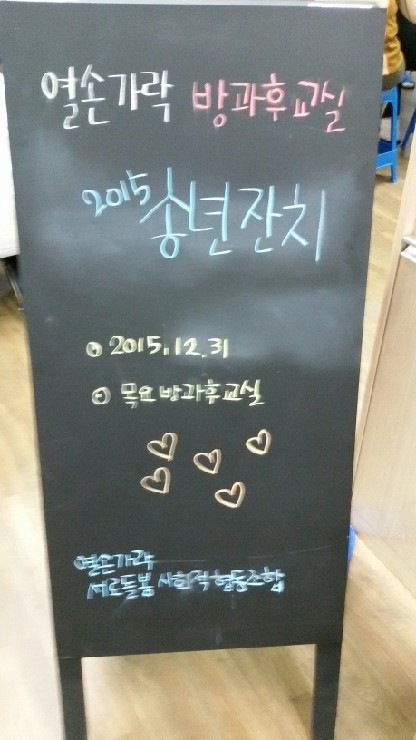 열손가락 방과후교실
2015 송년잔치
⊙ 2015.12.31
⊙ 목요방과후교실
열손가락
서로돌봄 사회적협동조합